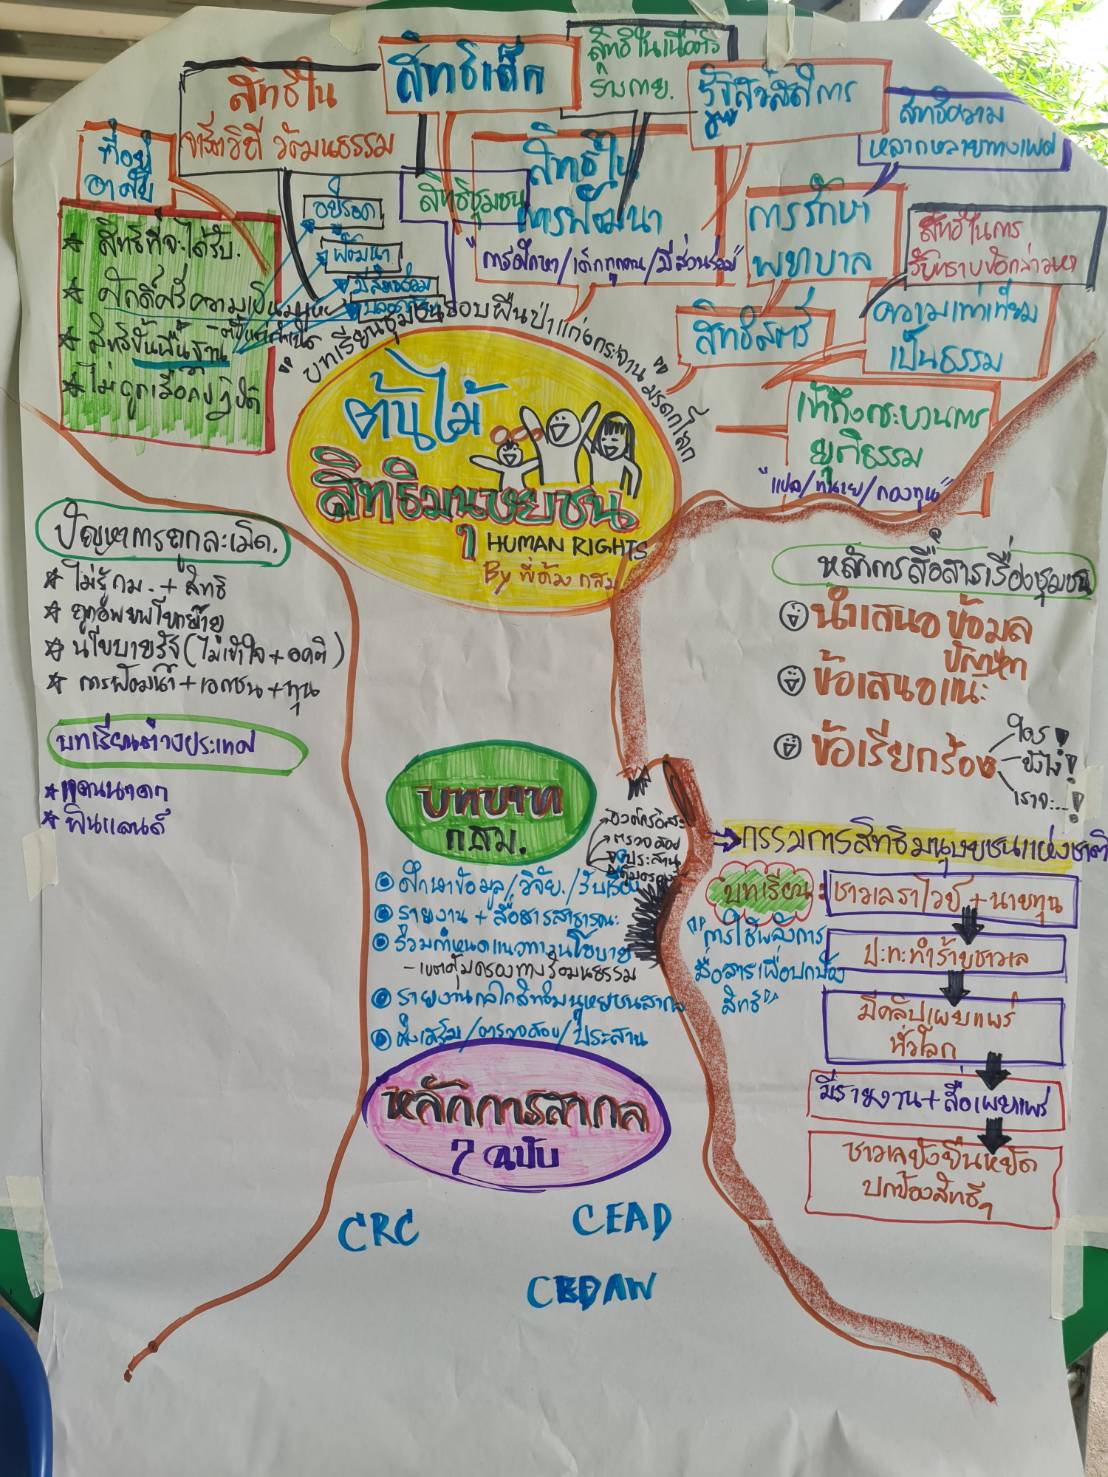 สิทธิใน
จารีตวิถี วัฒนธรรม
สิทธิเด็ก
สิทธิในเนื้อตัว
ร่างกาย.
รัฐสวัสดิการ
สิทธิความ
หลากหลายทางเพศ
ที่อยู่
อาศัย
สิทธิชุมชน
สิทธิใน
การพัฒนา
"การศึกษา/เด็กทุกคน/มีส่วนร่วม"
การรักษา
พยาบาล
สิทธิในการ
รับทราบข้อกล่าวหา
สิทธิสตรี
ความเท่าเทียม
เป็นธรรม
เข้าถึงกระบวนการ
ยุติธรรม
"แปล/ทนาย/กองทุน"
★ สิทธิที่จะได้รับ.
★ ศักดิ์ศรีความเป็นมนุษย์
★ สิทธิขั้นพื้นฐาน
★ ไม่ถูกเลือกปฏิบัติ
อยู่รอด
พัฒนา
มีส่วนร่วม
"บทเรียนชุมชนรอบผืนป่าแก่งกระจาน มรดกโลก"
ต้นไม้
สิทธิมนุษยชน
ๆ HUMAN RIGHTS
By พี่ต้อม กสม
ปัญหาการถูกละเมิด.
★ ไม่รู้กม. + สิทธิ
★ ถูกอพยพโยกย้าย
★ นโยบายรัฐ (ไม่เข้าใจ + อคติ)
★ การพัฒนา + เอกชน + ทุน
บทเรียนต่างประเทศ
★ แคนนาดา
★ ฟินแลนด์
หลักการสื่อสารเรื่องชุมชน
นำเสนอ ข้อมูล
ปัญหา
ข้อเสนอแนะ
ข้อเรียกร้อง
ใคร!
ยังไง!
เราจะ...!
บทบาท
กสม.
องค์กรอิสระ
ตรวจสอบ
ประสาน
คุ้มครอง
ศึกษาข้อมูล/วิจัย/รับเรื่อง
รายงาน + สื่อสารสาธารณะ
ร่วมกำหนดแนวทางนโยบาย
- เขตคุ้มครองทางวัฒนธรรม
รายงานกลไกสิทธิมนุษยชนสากล
ส่งเสริม/ตรวจสอบ/ประสาน
กรรมการสิทธิมนุษยชนแห่งชาติ
บทเรียน:
"การใช้พลังการ
สื่อสารเพื่อปกป้อง
สิทธิ"
ชาวเลราไวย์ + นายทุน
ปะทะทำร้ายชาวเล
มีคลิปเผยแพร่
ทั่วโลก
มีรายงาน + สื่อเผยแพร่
ชาวเลยังยืนหยัด
ปกป้องสิทธิๆ
หลักการสากล
7 ฉบับ
CRC
CEAD
CEDAW